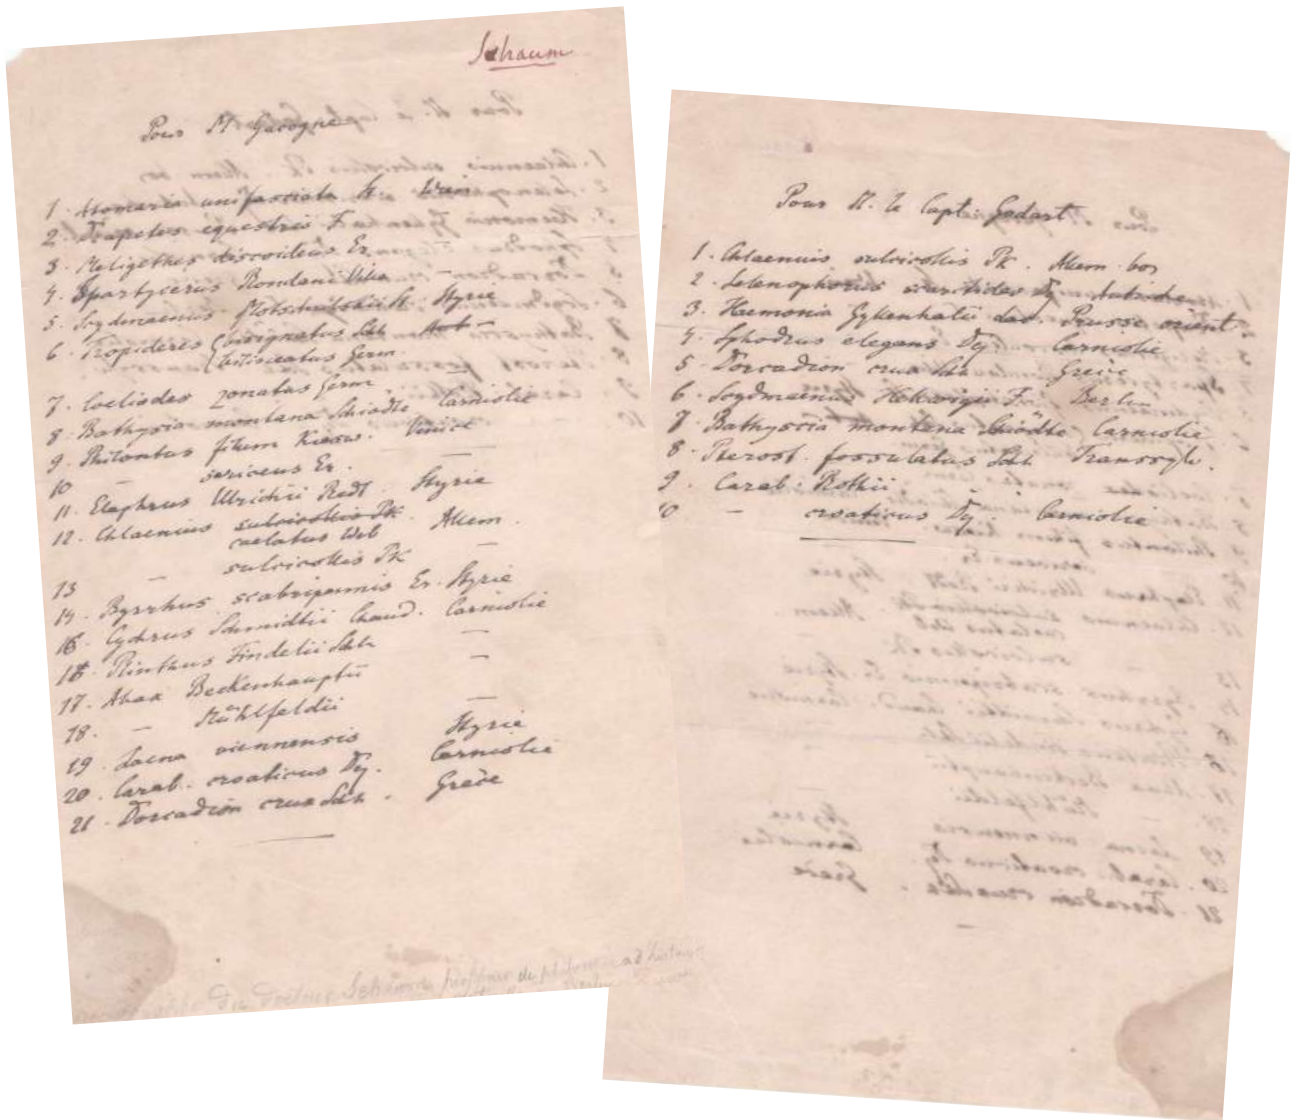 Schaum
Pour Mr Gacogne
1. Atomaria unifasciata Er.
2. Trapelus equestris F.
3. Meligethes discoideus Er.
4. Spartycerus Rondani Villa —
5. Scydmaenus Motschulskii St. Styrie
6. Tropideres bisignatus Sch —
bilineatus Germ
7. Coeliodes zonatus Germ —
8. Bathyscia montana Schiödte Carniolie
9. Philontus filum Kiesw. Venise
10 — sericeus Er. —
11. Elaphrus Ulrichii Redt. Styrie
12. Chlaenius sulcicollis Pk.
caelatus Web Allem.
13 — sulcicollis Pk —
14. Byrrhus scabripennis Er. Styrie
15. Cychrus Schmidtii Chaud. Carniolie
16. Plinthus Findelii Sch —
17. Abax Beckenhauptii —
18. — Mühlfeldii —
19. Laena viennensis Styrie
20. Carab. croaticus Dj. Carniolie
21. Dorcadion crux Sch. Grèce
Dr Docteur Schaum professeur de
Pour M. le Capt. Godart
1. Chlaenius sulcicollis Pk. Allem. bor
2. Selenophorus scaritides Dj. Autriche
3. Haemonia Gyllenhalii Lac. Prusse orient.
4. Sphodrus elegans Dej Carniolie
5. Dorcadion crux Sch Grèce
6. Scydmaenus Hellwigii F. Berlin
7. Bathyscia montana Schiödte Carniolie
8. Pterost. fossulatus Sch Transsylv.
9. Carab. Rothii
10 — croaticus Dj. Carniolie